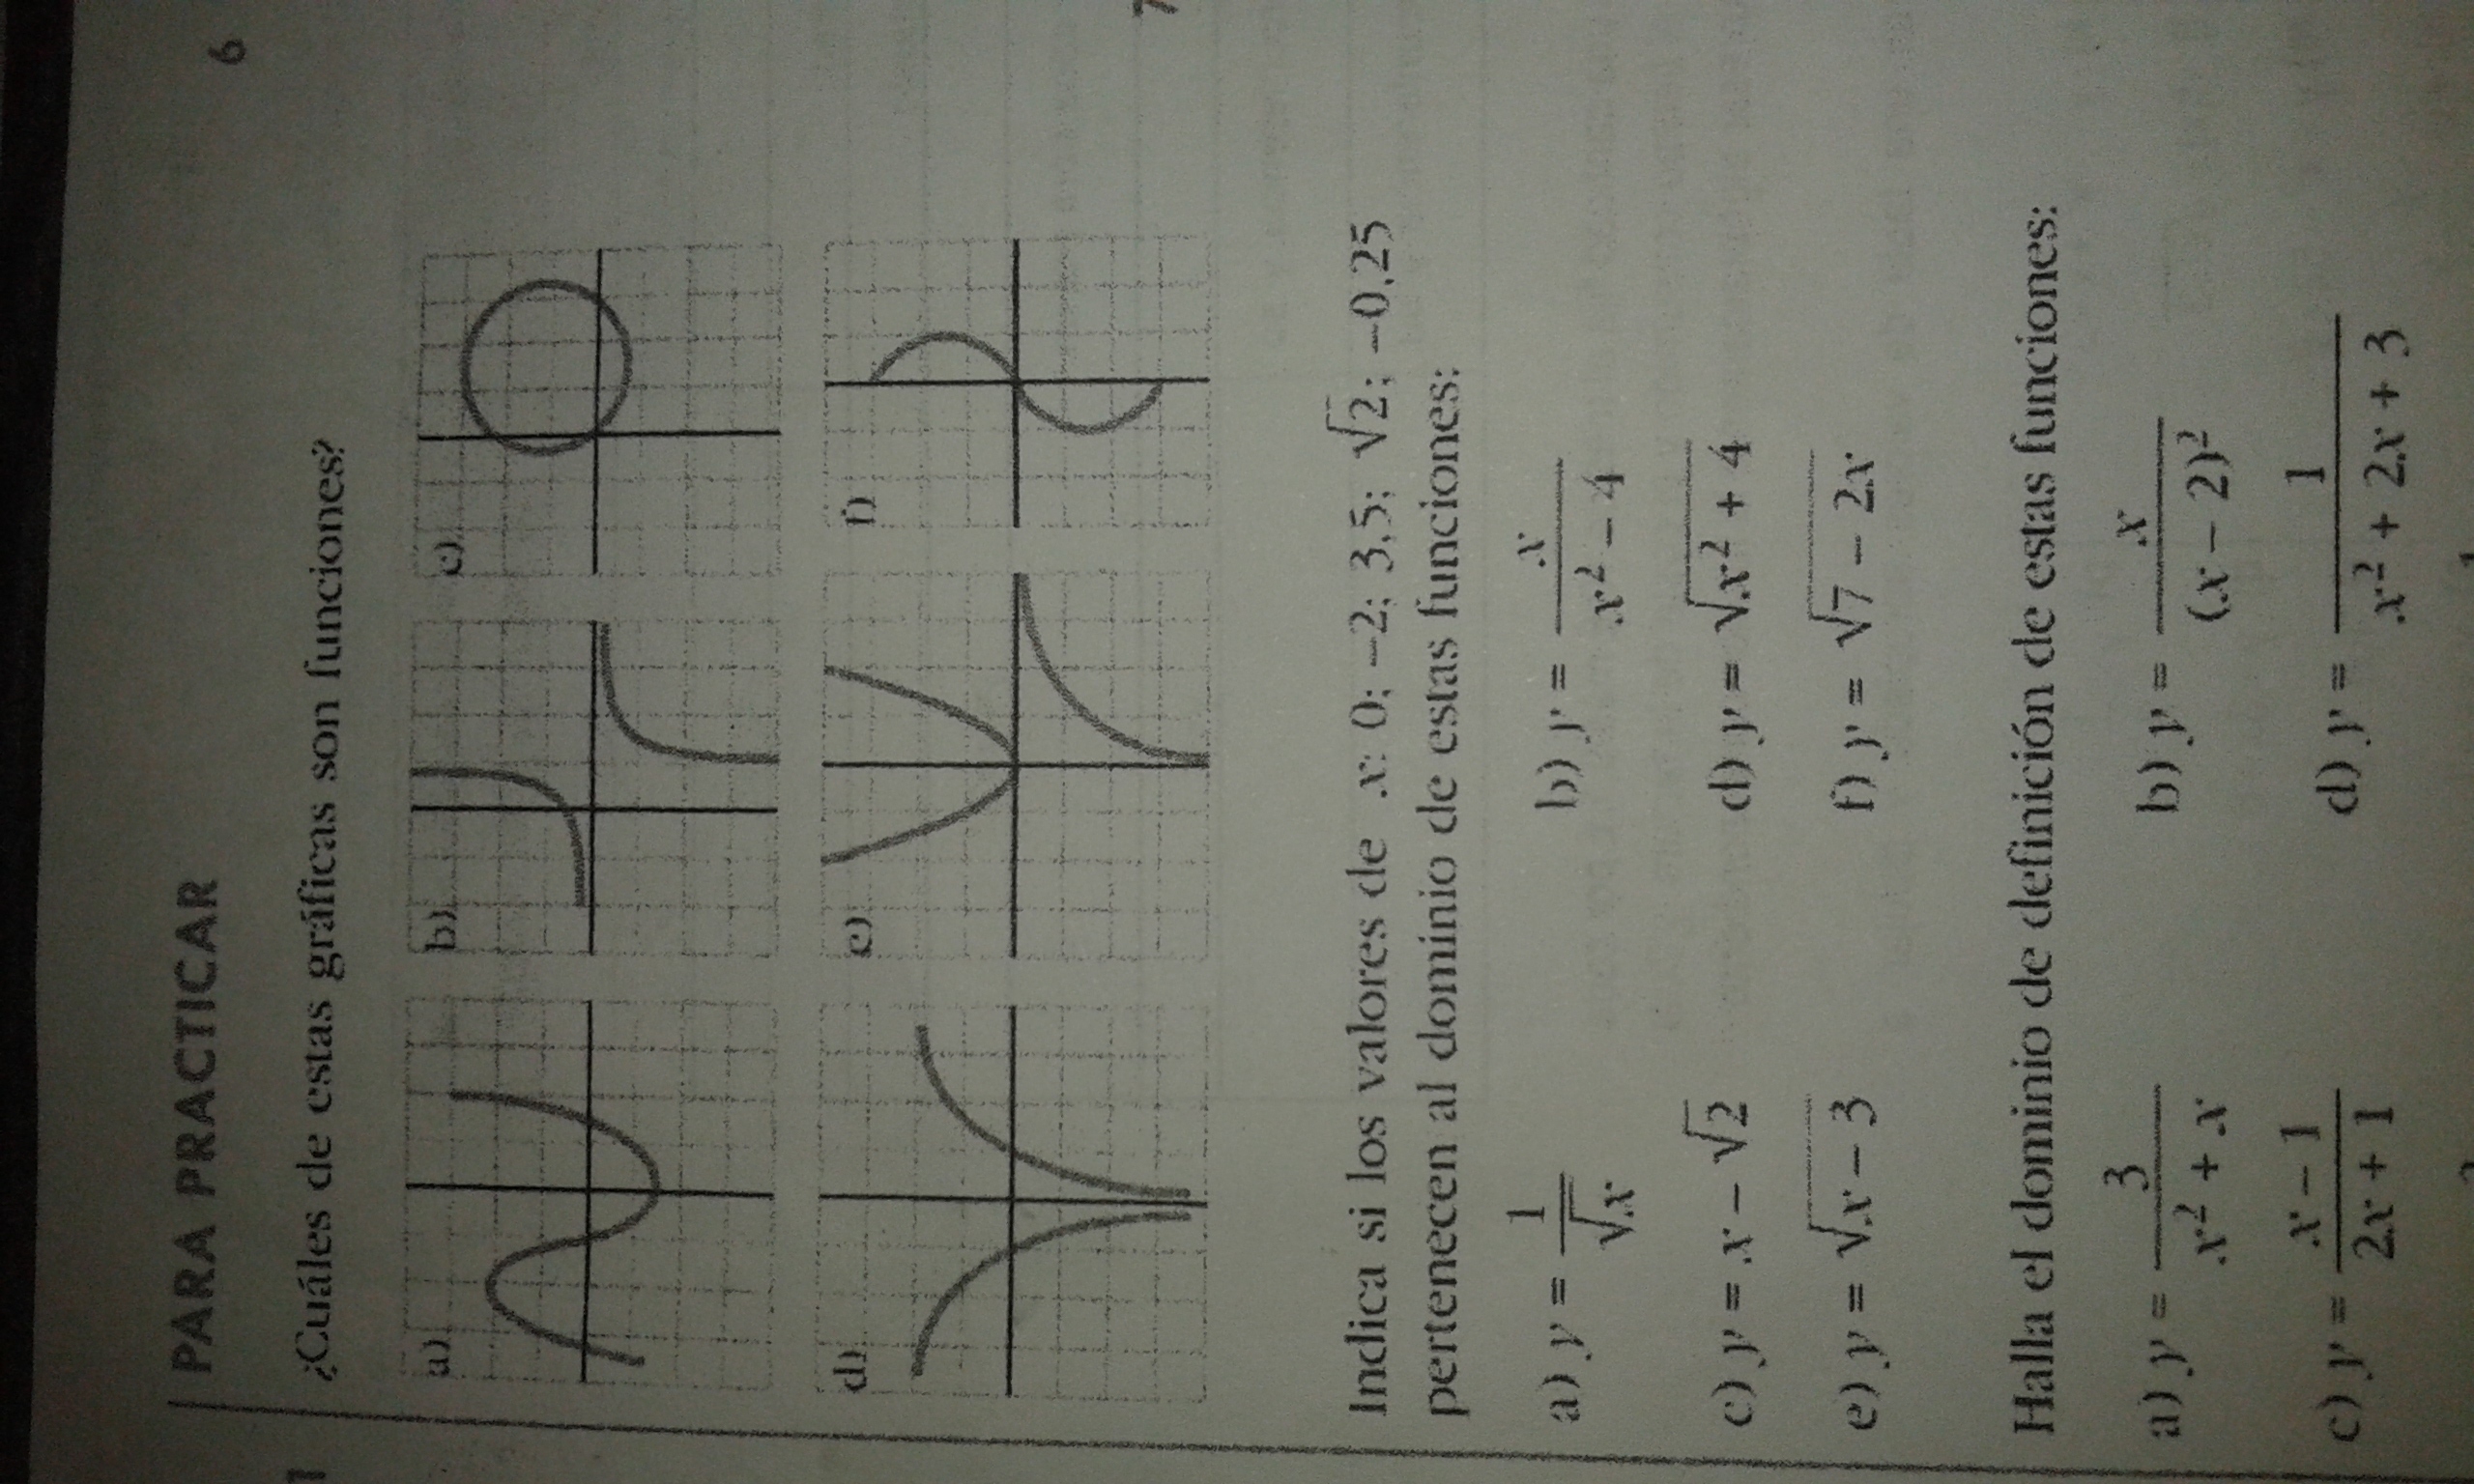 PARA PRACTICAR
6
1
¿Cuáles de estas gráficas son funciones?
a)
b)
c)
d)
e)
f)
7
Indica si los valores de x: 0; −2; 3,5; √2; −0,25
pertenecen al dominio de estas funciones:
a) y = 1/√x
b) y = x/(x² − 4)
c) y = x − √2
d) y = √(x² + 4)
e) y = √(x − 3)
f) y = √(7 − 2x)
Halla el dominio de definición de estas funciones:
a) y = 3/(x² + x)
b) y = x/(x − 2)²
c) y = (x − 1)/(2x + 1)
d) y = 1/(x² + 2x + 3)